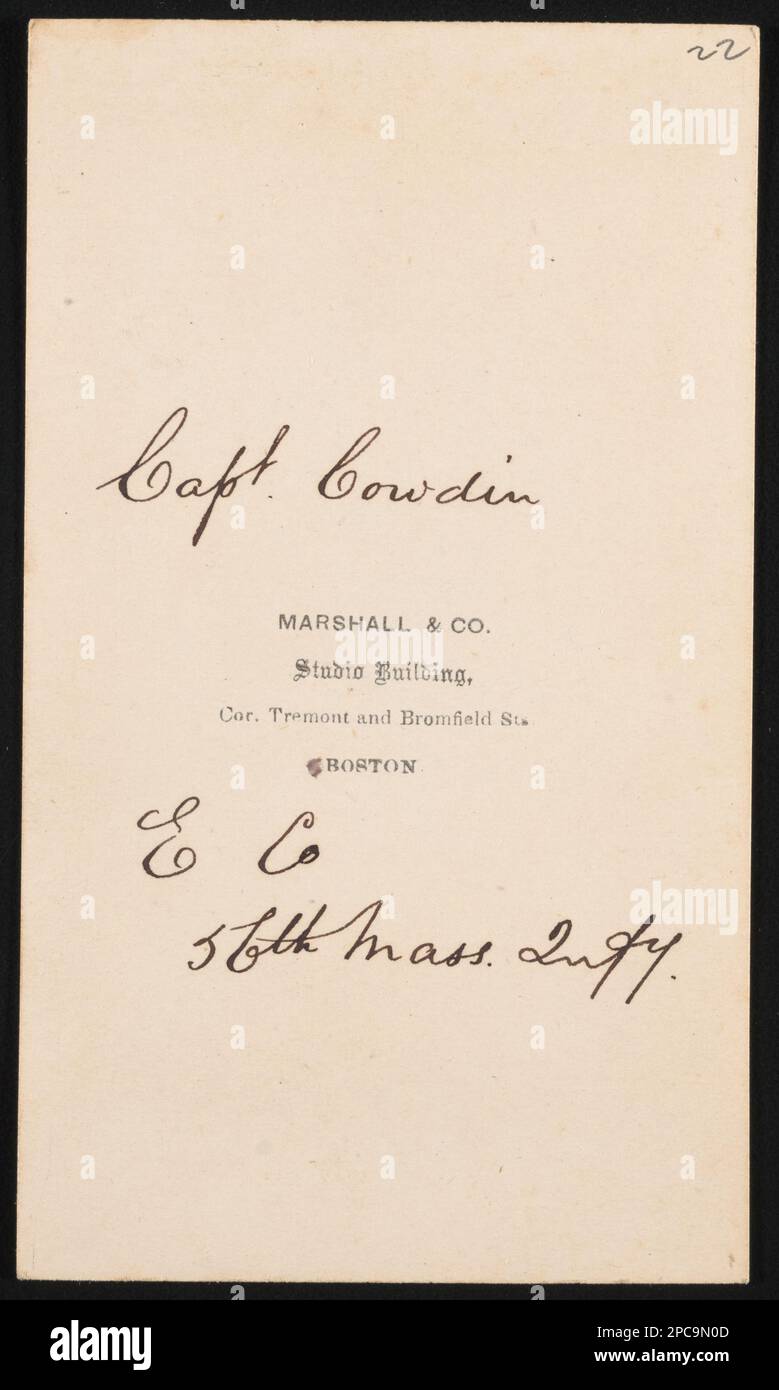 22
alamy
Capt. Cowdin
MARSHALL & CO.
alamy
Studio Building,
Cor. Tremont and Bromfield Sts
BOSTON
E Co
alamy
56th Mass. Infy.
alamy
Image ID: 2PC9N0D
www.alamy.com